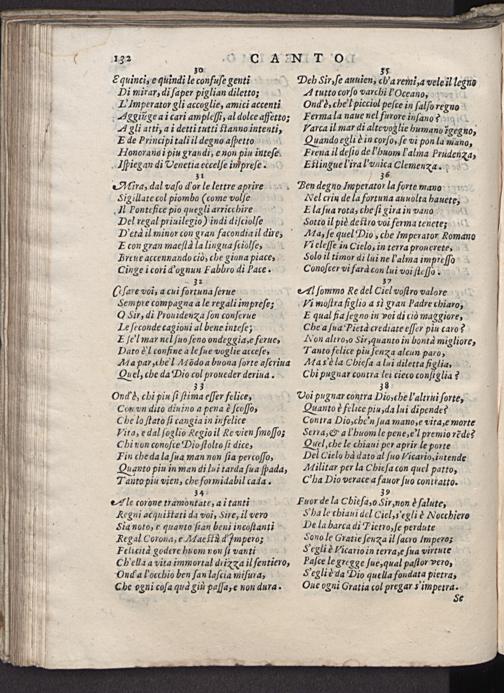 132 CANTO
30
E quinci, e quindi le confuse genti
Di mirar, di saper piglian diletto;
L'Imperator gli accoglie, amici accenti
Aggiuge a i cari amplessi, al dolce affetto;
A gli atti, a i detti tutti stanno intenti,
E de Principi tali il degno aspetto
Honorano i piu grandi, e non piu intese
Ispiegan di Venetia eccelse imprese.
31
Mira, dal vaso d'or le lettre aprire
Sigillate col piombo (come volse
Il Pontefice pio quegli arricchire
Del regal privilegio) indi disciolse
D'età il minor con gran facondia il dire,
E con gran maestà la lingua sciolse,
Breve accennando ciò, che giova piace,
Cinge i cori d'ognun Fabbro di Pace.
32
Cesare voi, a cui fortuna serve
Sempre compagna a le regali imprese;
O Sir, di Providenza son conserve
Le seconde cagioni al bene intese;
E se'l mar nel suo seno ondeggia, e ferve,
Dato è'l confine a le sue voglie accese,
Ma par, che'l Mōdo a buona sorte ascriva
Quel, che da Dio col proveder deriva.
33
Ond'è, chi piu si stima esser felice,
Con un dito divino a pena è scosso,
Che lo stato si cangia in infelice
Vita, e dal soglio Regio il Re vien smosso;
Chi non conosce Dio stolto si dice,
Fin che da la sua man non sia percosso,
Quanto piu in man di lui tarda sua spada,
Tanto piu vien, che formidabil cada.
34
A le corone tramontate, a i tanti
Regni acquistati da voi, Sire, il vero
Sia noto, e quanto sian beni incostanti
Regal Corona, e Maestà d'Impero;
Felicità godere huom non si vanti
Ch'ella a vita immortal drizza il sentiero,
Ond'a l'occhio ben san lascia misura,
Che ogni cosa quà giù passa, e non dura.
35
Deh Sir, se avvien, ch'a remi, a vele il legno
A tutto corso varchi l'Oceano,
Ond'è, che'l picciol pesce in salso regno
Ferma la nave nel furore insano?
Varca il mar di alte voglie humano īgegno,
Quando egli è in corso, se vi pon la mano,
Frena il desio de l'huom l'alma Prudenza,
Estingue l'ira l'unica Clemenza.
36
Ben degno Imperator la forte mano
Nel crin de la fortuna avvolta havete,
E la sua rota, che si gira in vano
Sotto il piè destro voi ferma tenete;
Ma, se quel Dio, che Imperator Romano
Vi elesse in Cielo, in terra provverete,
Solo il timor di lui ne l'alma impresso
Conoscer vi farà con lui voi stesso.
37
Al sommo Re del Ciel vostro valore
Vi mostra figlio a sì gran Padre chiaro,
E qual fia segno in voi di ciò maggiore,
Che a sua Pietà crediate esser piu caro?
Non altro, o Sir, quanto in bontà migliore,
Tanto felice piu senza alcun paro,
Ma s'è la Chiesa a lui diletta figlia,
Chi pugnar contra lei cieco consiglia?
38
Voi pugnar contra Dio, che l'altrui sorte,
Quanto è felice piu, da lui dipende?
Contra Dio, che'n sua mano, e vita, e morte
Serra, & a l'huom le pene, e'l premio rēde?
Quel, che le chiavi per aprir le porte
Del Cielo hà dato al suo Vicario, intende
Militar per la Chiesa con quel patto,
C'ha Dio verace a favor suo contratto.
39
Fuor de la Chiesa, o Sir, non è salute,
S'ha le chiavi del Ciel, s'egli è Nocchiero
De la barca di Pietro, se perdute
Sono le Gratie senza il sacro Impero;
S'egli è Vicario in terra, e sua virtute
Pasce le gregge sue, qual pastor vero,
S'egli è da Dio quella fondata pietra,
Ove ogni Gratia col pregar s'impetra.
Se